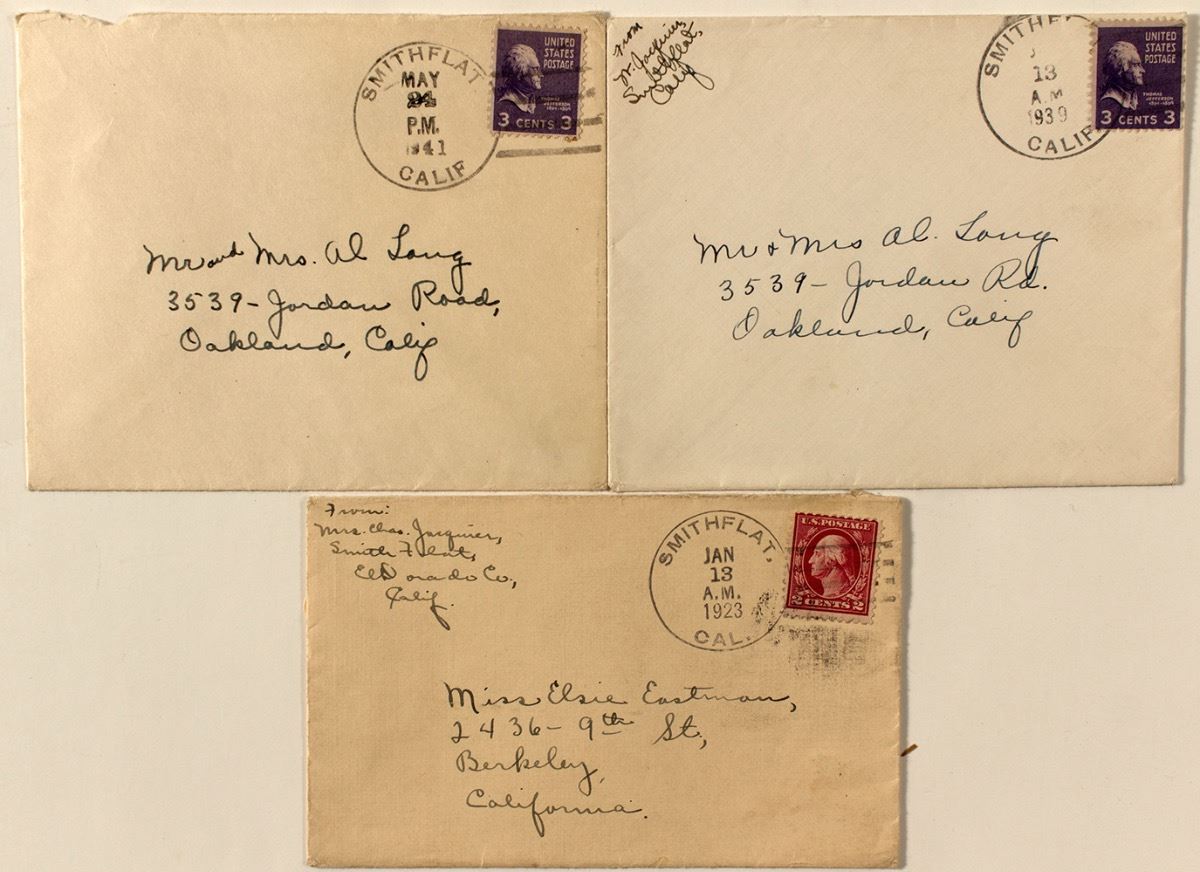 SMITHFLAT
MAY
P.M.
1941
CALIF
UNITED
STATES
POSTAGE
THOMAS
JEFFERSON
1801-1809
3 CENTS 3
Mr and Mrs. Al Long
3539-Jordan Road,
Oakland, Calif
From
Smithflat,
Calif
SMITHF
13
A.M
1939
CALIF
UNITED
STATES
POSTAGE
THOMAS
JEFFERSON
1801-1809
3 CENTS 3
Mr & Mrs Al. Long
3539-Jordan Rd.
Oakland, Calif
From:
Mrs. Chas. Jaquier,
Smith Flat,
El Dorado Co.,
Calif.
SMITHFLAT,
JAN
13
A.M.
1923
CAL.
U.S. POSTAGE
2 CENTS 2
Miss Elsie Eastman,
2436-9th St.,
Berkeley,
California.